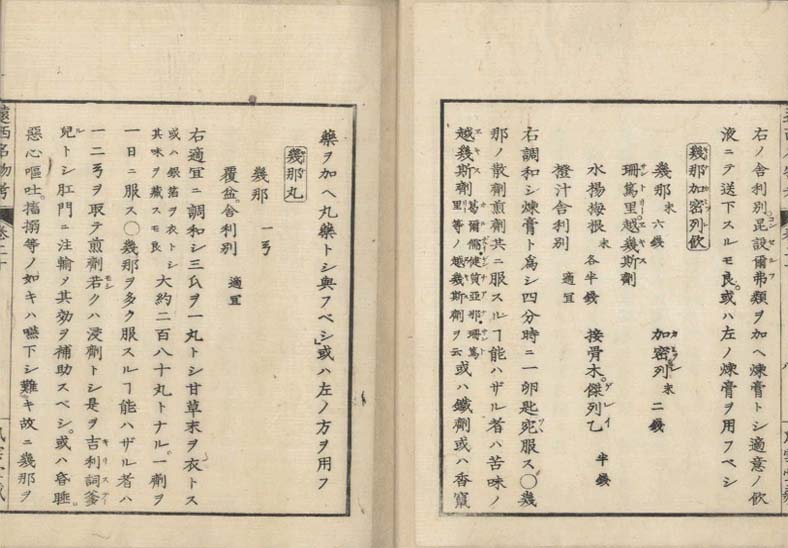 右ノ舎利別昆設爾弗類ヲ加ヘ煉膏トシ適意ノ飲
液ニテ送下スルモ良。或ハ左ノ煉膏ヲ用フベシ
幾那加密列飲
幾那 末 六錢 加密列 末 二錢
珊篤里越幾斯劑
水楊梅根 末 各半錢 接骨木。傑列乙 半錢
橙汁舎利別 適宜
右調和シ煉膏ト為シ四分時ニ一卵匙宛服ス〇幾
那ノ散劑煎劑共ニ服スルヿ能ハザル者ハ苦味ノ
越幾斯劑 葛爾儞健質亞那。珊篤里等ノ越幾斯劑ヲ云 或ハ鐵劑或ハ香竄
藥ヲ加ヘ丸藥トシ與フベシ」或ハ左ノ方ヲ用フ
幾那丸
幾那 一弓
覆盆。舎利別 適宜
右適宜ニ調和シ三瓦ヲ一丸トシ甘草末ヲ衣トス
或ハ銀箔ヲ衣トシ其味ヲ藏スモ良 大約二百八十丸トナル」一劑ヲ
一日ニ服ス〇幾那ヲ多ク服スルヿ能ハザル者ハ
一二弓ヲ取テ煎劑若クハ浸劑トシ是ヲ吉利詞爹
兒トシ肛門ニ注輸ソ其効ヲ補助スベシ。或ハ昏睡。
惡心嘔吐。搐搦等ノ如キハ嚥下シ難キ故ニ幾那ヲ
遠西名物考 巻二十